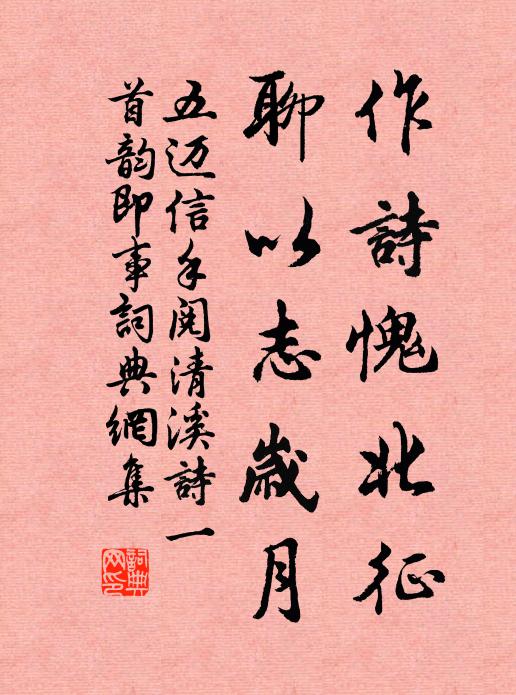 作詩愧北征
聊以志歲月
五迈信手阅清溪詩一
首韵即事詞典網集
詞典網印